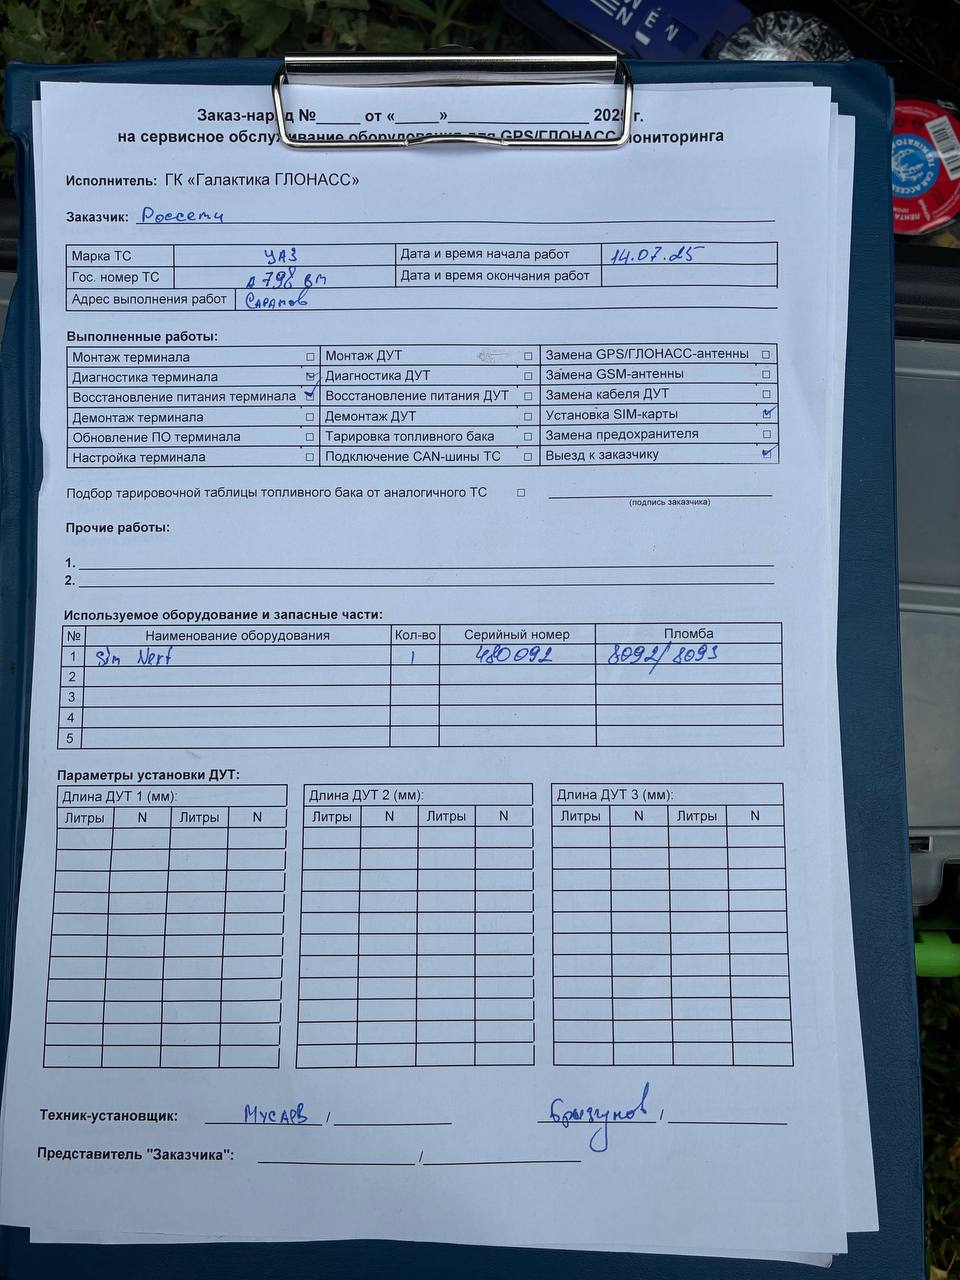 Заказ-наряд №_____ от «_____»________________ 2025 г.
на сервисное обслуживание оборудования для GPS/ГЛОНАСС мониторинга
Исполнитель: ГК «Галактика ГЛОНАСС»
Заказчик: Россети
Марка ТС УАЗ Дата и время начала работ 14.07.25
Гос. номер ТС А 798 ВМ Дата и время окончания работ
Адрес выполнения работ Саратов
Выполненные работы:
Монтаж терминала ☐ Монтаж ДУТ ☐ Замена GPS/ГЛОНАСС-антенны ☐
Диагностика терминала ☑ Диагностика ДУТ ☐ Замена GSM-антенны ☐
Восстановление питания терминала ☑ Восстановление питания ДУТ ☐ Замена кабеля ДУТ ☐
Демонтаж терминала ☐ Демонтаж ДУТ ☐ Установка SIM-карты ☑
Обновление ПО терминала ☐ Тарировка топливного бака ☐ Замена предохранителя ☐
Настройка терминала ☐ Подключение CAN-шины ТС ☐ Выезд к заказчику ☑
Подбор тарировочной таблицы топливного бака от аналогичного ТС ☐
(подпись заказчика)
Прочие работы:
1.
2.
Используемое оборудование и запасные части:
№ Наименование оборудования Кол-во Серийный номер Пломба
1 Sim 1 480092 8092/8093
2
3
4
5
Параметры установки ДУТ:
Длина ДУТ 1 (мм): Длина ДУТ 2 (мм): Длина ДУТ 3 (мм):
Литры N Литры N Литры N Литры N Литры N Литры N
Техник-установщик: Мусаев / Брызгунов /
Представитель "Заказчика": /